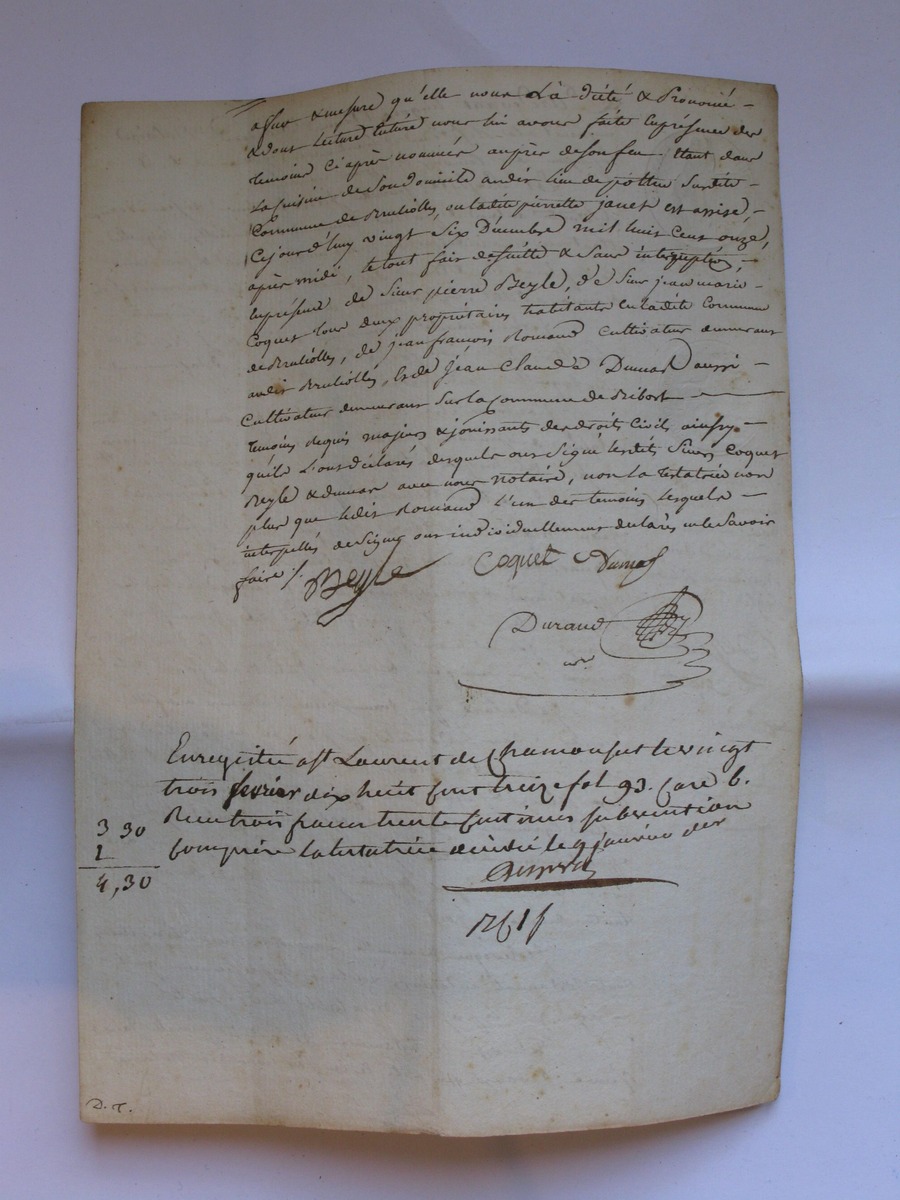 afur & mesure qu'elle nous La diété & Prononcé -
& dont lecture Entière nous lui avons faite Enprésence des
temoins Ci après nommés auprès deson feu. Etant dans
La Cuisine de Son Domicile audit lieu de pottu Susdite -
Commune de Brulliolles, ou ladite pierrette jauet est assise -
Cejourd'huy vingt Six Décembre mil huit Cent onze,
après midi, le tout fait desuitte & Sans interruption, -
Enprésence de Sieur pierre Beyle, de Sieur jean marie -
Coquet tous deux propriétaires habitants En ladite Commune
de Brulliolles, de jean françois Romand Cultivateur demeurant
audit Brulliolles, Et de jean Claude Dumas aussi -
Cultivateur demeurant Sur la Commune de Ribost
temoins requis majeurs & jouissants des droits Civils ainsy -
quils L'ont déclarés desquels ont Signé lesdits Sieurs Coquet
Beyle & dumas avec nous notaire, non la testatrice non
plus que ledit Romand l'un des temoins lesquels -
interpellés de Signer ont individuellement déclarés ne le Savoir
faire /.
Beyle Coquet Dumas
Durand
nre
Enregistré a St Laurent de Chamousset le vingt
trois fevrier dix huit Cent treize fol 93. Care b.
Recu trois francs trente Centimes subvention
Comprise la testatrice décédée le 9 janvier der
3 30
1
4,30
D. T.